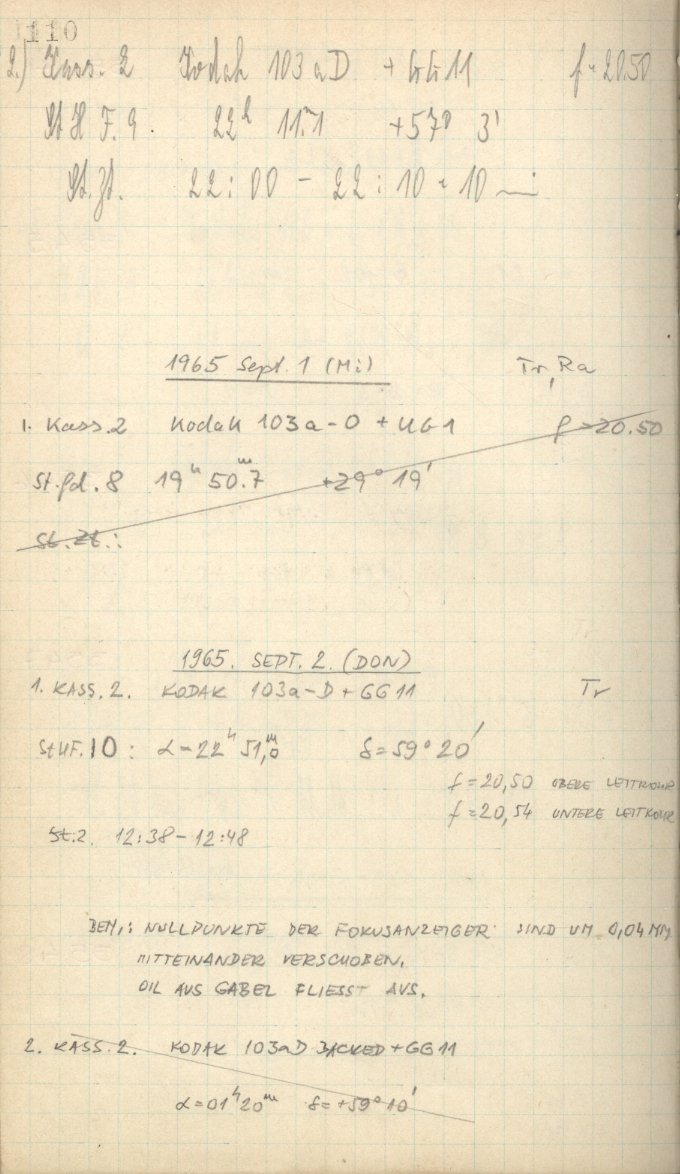 110
2.) Kass. 2 Kodak 103 aD + GG 11 f = 20.50
St H F. 9. 22h 11m.1 +57° 3'
St. Zt. 22:00 – 22:10 = 10 min
1965 Sept. 1 (Mi) Tr, Ra
1. Kass. 2 Kodak 103a-O + UG1 f = 20.50
St.fd. 8 19h 50m.7 +29° 19'
St. Zt.:
1965. SEPT. 2. (DON)
1. KASS. 2. KODAK 103a-D + GG 11 Tr
StHF. 10 : α = 22h 51,m0 δ = 59° 20'
f = 20,50 OBERE LEITROHR
f = 20,54 UNTERE LEITROHR
St.Z. 12:38 – 12:48
BEM.: NULLPUNKTE DER FOKUSANZEIGER SIND UM 0,04 MM
MITTEINANDER VERSCHOBEN.
OIL AUS GABEL FLIESST AUS.
2. KASS. 2. KODAK 103aD BACKED + GG 11
α = 01h 20m δ = +59° 10'